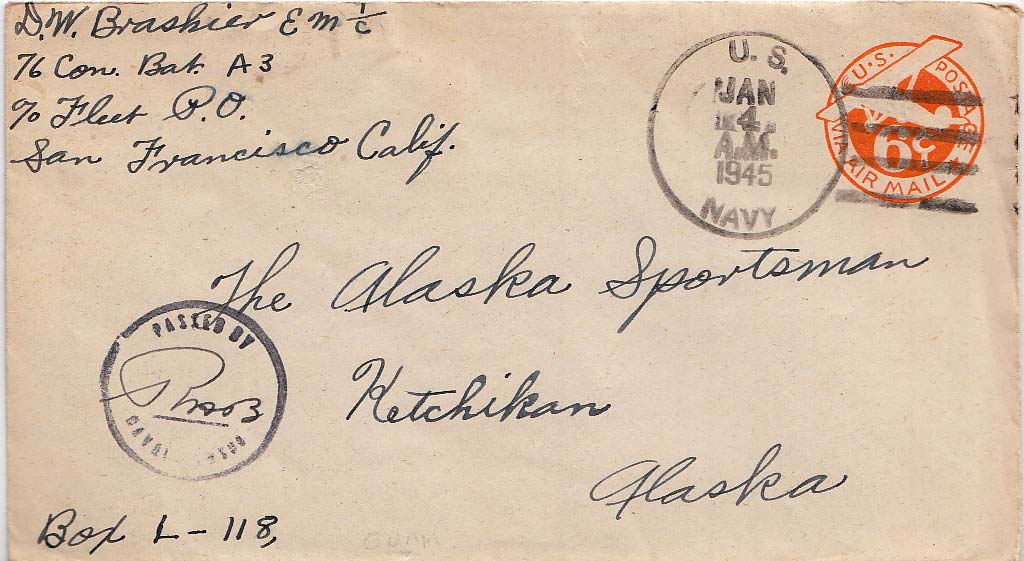 D.W. Brashier EM 1/c
76 Con. Bat. A3
c/o Fleet P.O.
San Francisco Calif.
U. S.
JAN
4
A.M.
1945
NAVY
U.S. POSTAGE
6¢
VIA AIR MAIL
The Alaska Sportsman
Ketchikan
Alaska
PASSED BY
Box L-118,